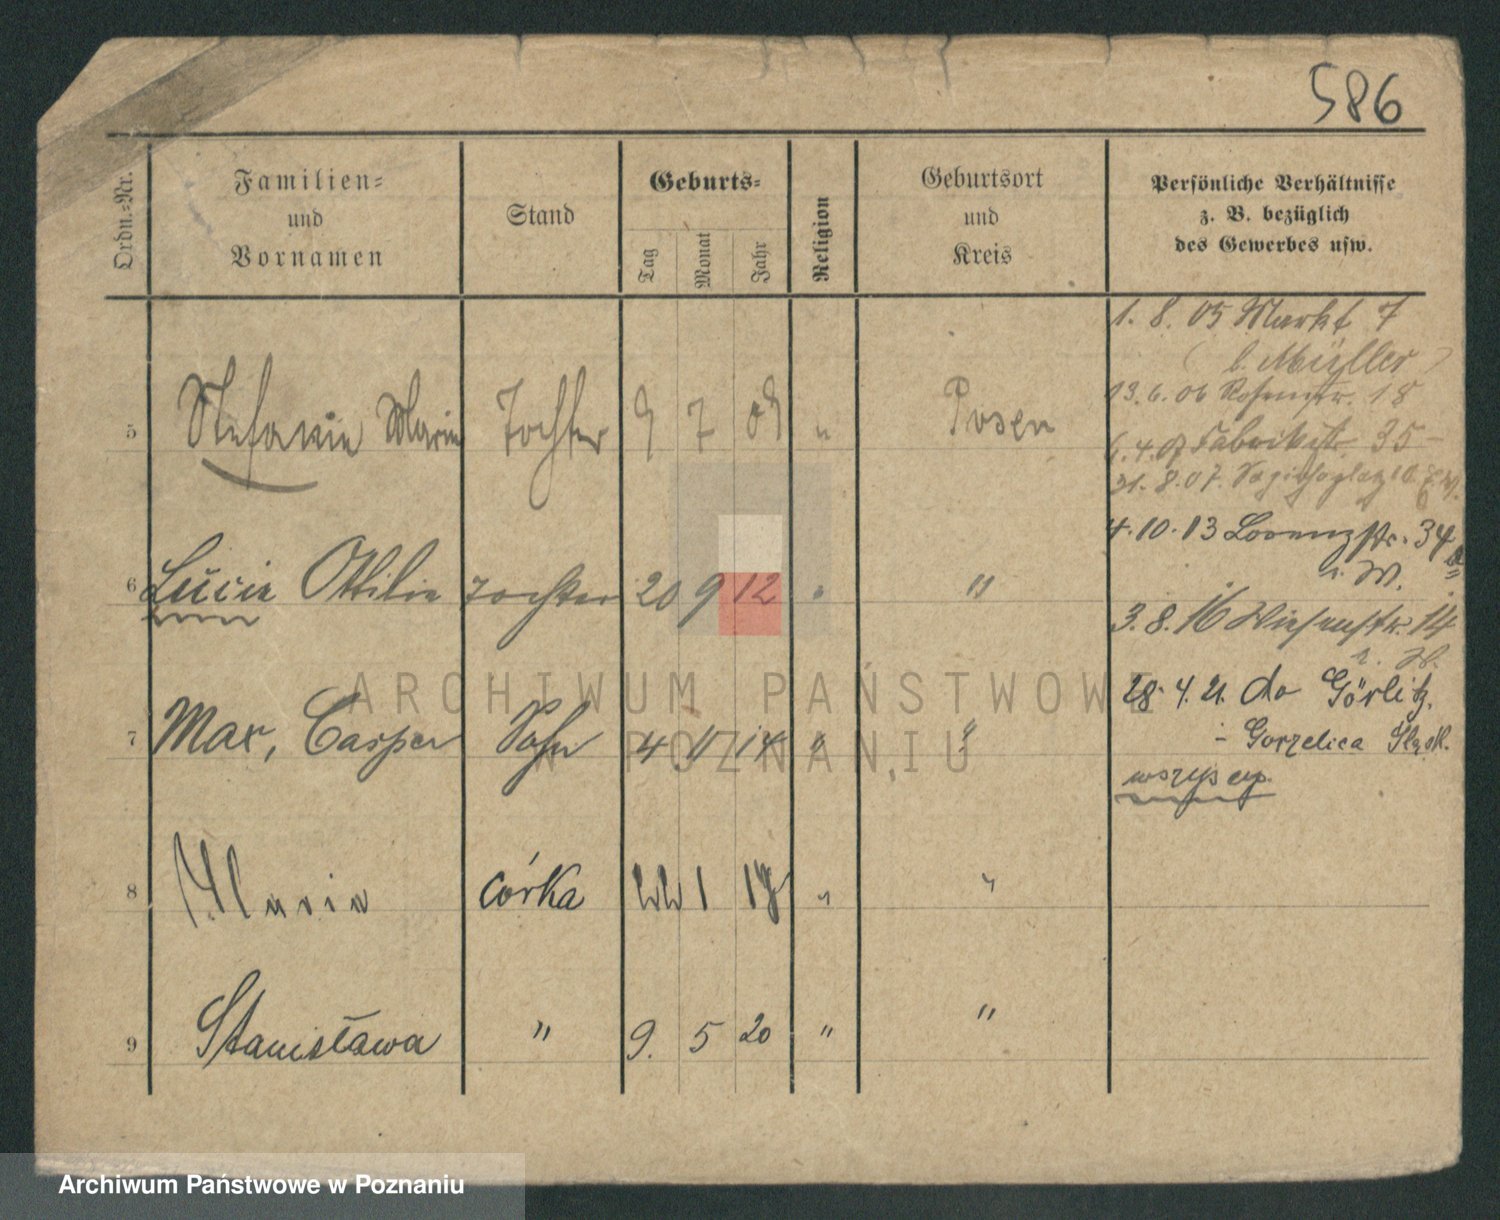 586
Ordn.-Nr.
Familien-
und
Vornamen
Stand
Geburts-
Tag
Monat
Jahr
Religion
Geburtsort
und
Kreis
Persönliche Verhältnisse
z. B. bezüglich
des Gewerbes usw.
1. 8. 05 Markt 7
( b. Müller )
13. 6. 06 Rosenstr. 18
5 Stefanie Marie Tochter 9 7 09 " Posen
6. 4. 07 Fabrikstr. 35
31. 8. 07.
4. 10. 13 Lorenzstr. 34a
6 Lucie Ottilie Tochter 20 9 12 " "
3. 8. 16 Wiesenstr. 14
28. 4. 21. do Görlitz,
7 Max, Casper Sohn 4 11 14 " "
- Gorzelica Śląsk.
wszyscy.
8 Maria córka 22 1 18 " "
9 Stanisława " 9. 5 20 " "
ARCHIWUM PAŃSTWOWE
W POZNANIU
Archiwum Państwowe w Poznaniu